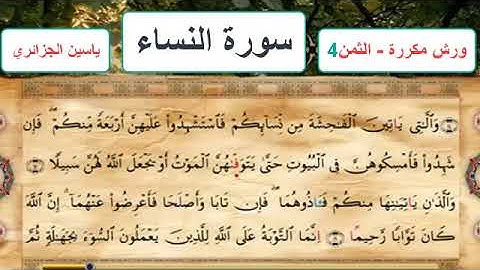 ورش مكررة - الثمن4
سورة النساء
ياسين الجزائري
وَالَّتِي يَاتِينَ الْفَاحِشَةَ مِن نِّسَآئِكُمْ فَاسْتَشْهِدُوا عَلَيْهِنَّ أَرْبَعَةً مِّنكُمْ فَإِن
شَهِدُوا فَأَمْسِكُوهُنَّ فِي الْبُيُوتِ حَتَّىٰ يَتَوَفَّيٰهُنَّ الْمَوْتُ أَوْ يَجْعَلَ اللَّهُ لَهُنَّ سَبِيلًا
وَالَّذَٰنِ يَاتِيَٰنِهَا مِنكُمْ فَـَٔاذُوهُمَا فَإِن تَابَا وَأَصْلَحَا فَأَعْرِضُوا عَنْهُمَا إِنَّ اللَّهَ
كَانَ تَوَّابًا رَّحِيمًا إِنَّمَا التَّوْبَةُ عَلَى اللَّهِ لِلَّذِينَ يَعْمَلُونَ السُّوٓءَ بِجَهَٰلَةٍ ثُمَّ